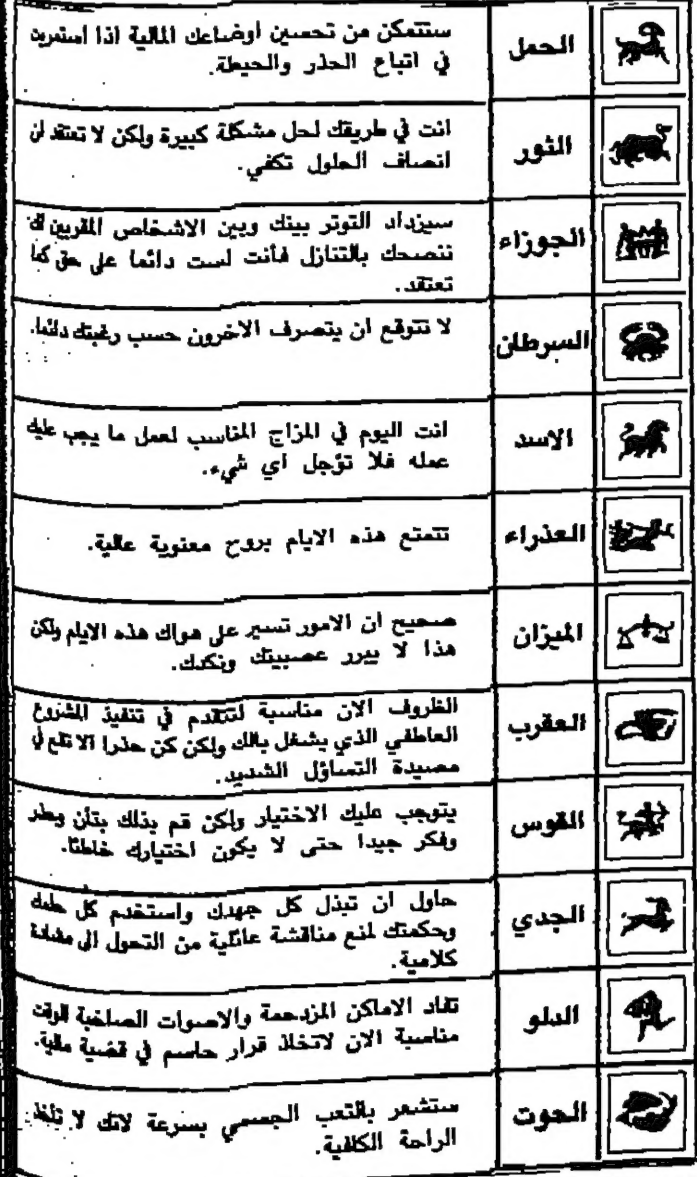 الحمل
ستتمكن من تحسين اوضاعك المالية اذا استمريت
في اتباع الحذر والحيطة.
الثور
انت في طريقك لحل مشكلة كبيرة ولكن لا تعتقد ان
انصاف الحلول تكفي.
الجوزاء
سيزداد التوتر بينك وبين الاشخاص المقربين لك
ننصحك بالتنازل فأنت لست دائما على حق كما
تعتقد.
السرطان
لا تتوقع ان يتصرف الاخرون حسب رغبتك دائما.
الاسد
انت اليوم في المزاج المناسب لعمل ما يجب عليك
عمله فلا تؤجل اي شيء.
العذراء
تتمتع هذه الايام بروح معنوية عالية.
الميزان
صحيح ان الامور تسير على هواك هذه الايام ولكن
هذا لا يبرر عصبيتك ونكدك.
العقرب
الظروف الان مناسبة لتتقدم في تنفيذ المشروع
العاطفي الذي يشغل بالك ولكن كن حذرا الا تقع في
مصيدة التساؤل الشديد.
القوس
يتوجب عليك الاختيار ولكن قم بذلك بتأن وحذر
وفكر جيدا حتى لا يكون اختيارك خاطئا.
الجدي
حاول ان تبذل كل جهدك واستخدم كل
وحكمتك لمنع مناقشة عائلية من التحول الى مشادة
كلامية.
الدلو
تفاد الاماكن المزدحمة والاصوات الصاخبة الوقت
مناسبة الان لاتخاذ قرار حاسم في قضية مالية.
الحوت
ستشعر بالتعب الجسمي بسرعة لانك لا تأخذ
الراحة الكافية.